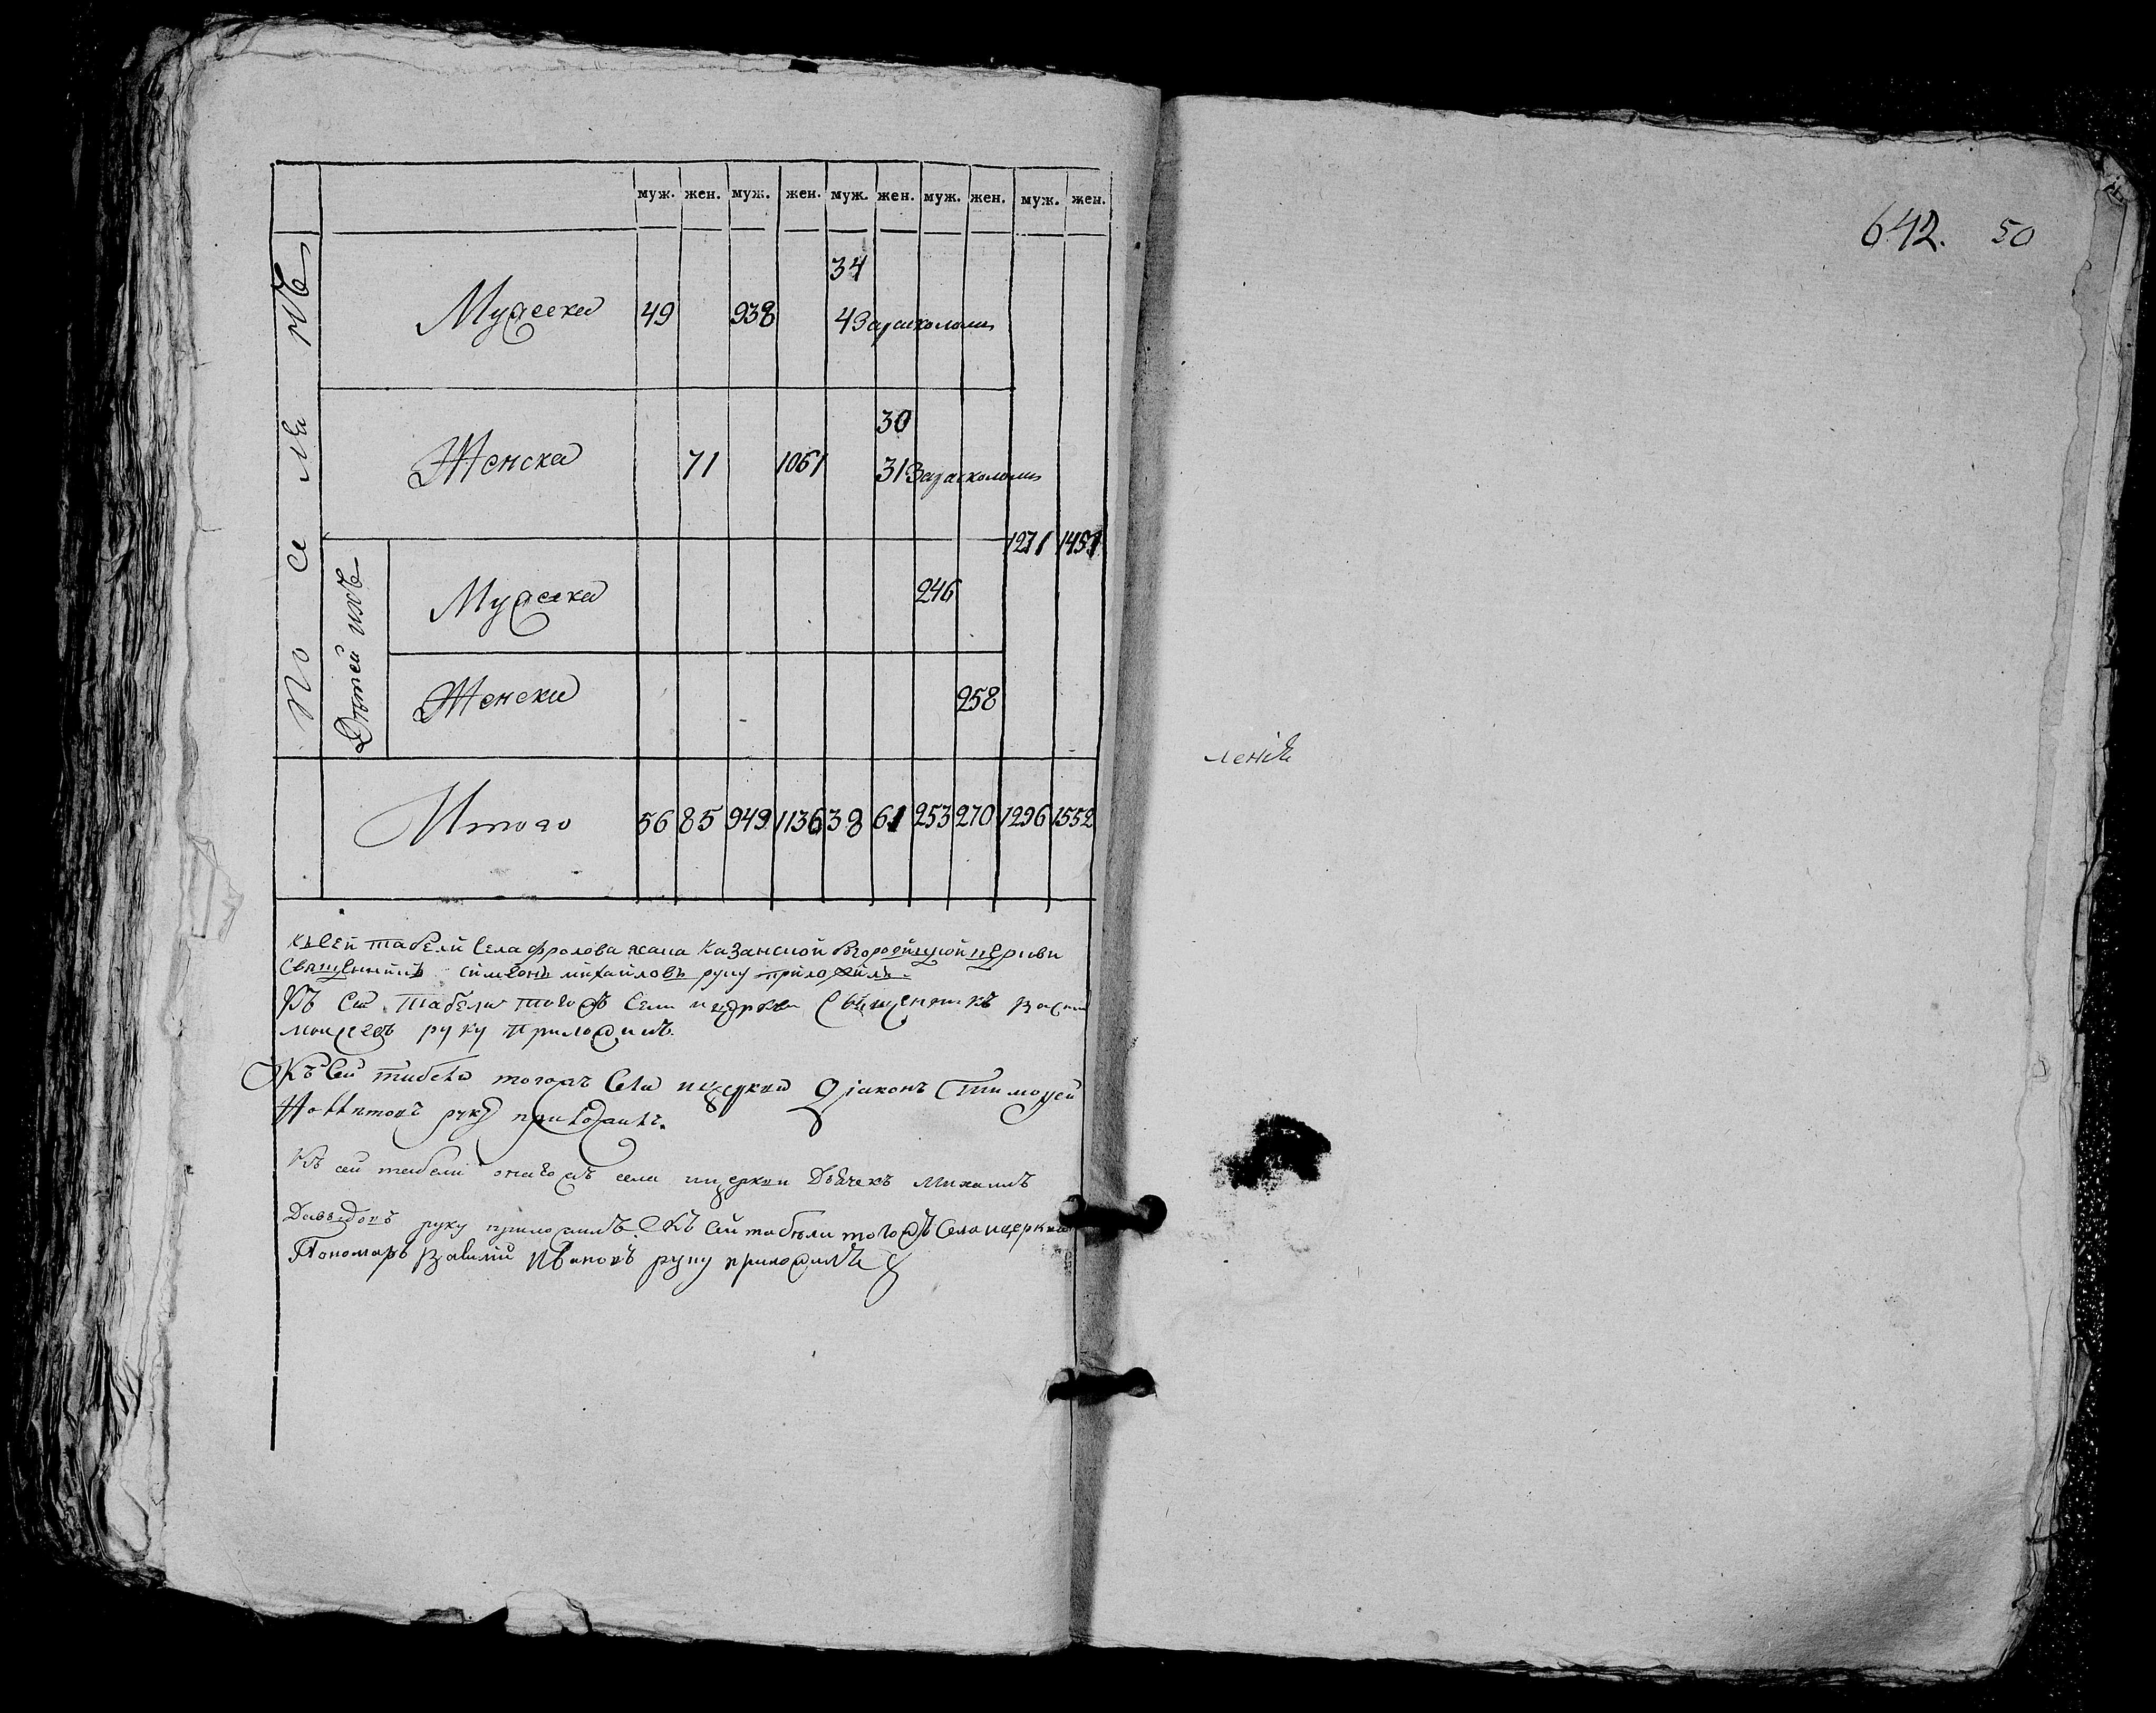 муж. жен. муж. жен. муж. жен. муж. жен. муж. жен.
34
Мужеска 49 938 4 За расколомъ
30
Женска 71 1061 31 За расколомъ
1271 1451
Детей ихъ
Мужеска 246
Женска 258
Итого 56 85 949 1136 38 61 253 270 1296 1552
къ сей табели села фролова казанской Богородицкой церкви
священникъ симеонъ михайловъ руку приложилъ
Къ сей табели тогожъ села и церкви священникъ
моисеевъ руку приложилъ.
Къ сей табели тогожъ села и церкви Діаконъ Тимофей
руку приложилъ.
Къ сей табели онагожъ села и церкви Дьячекъ Михаилъ
Давыдовъ руку приложилъ. Къ сей табели тогожъ села и церкви
Пономарь Василий Ивановъ руку приложилъ
642. 50
ление